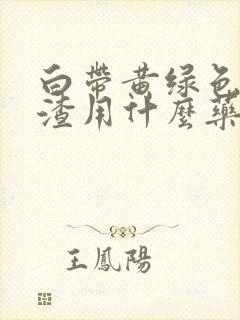 白帶黃绿色
渣用什麼藥
王鳳陽